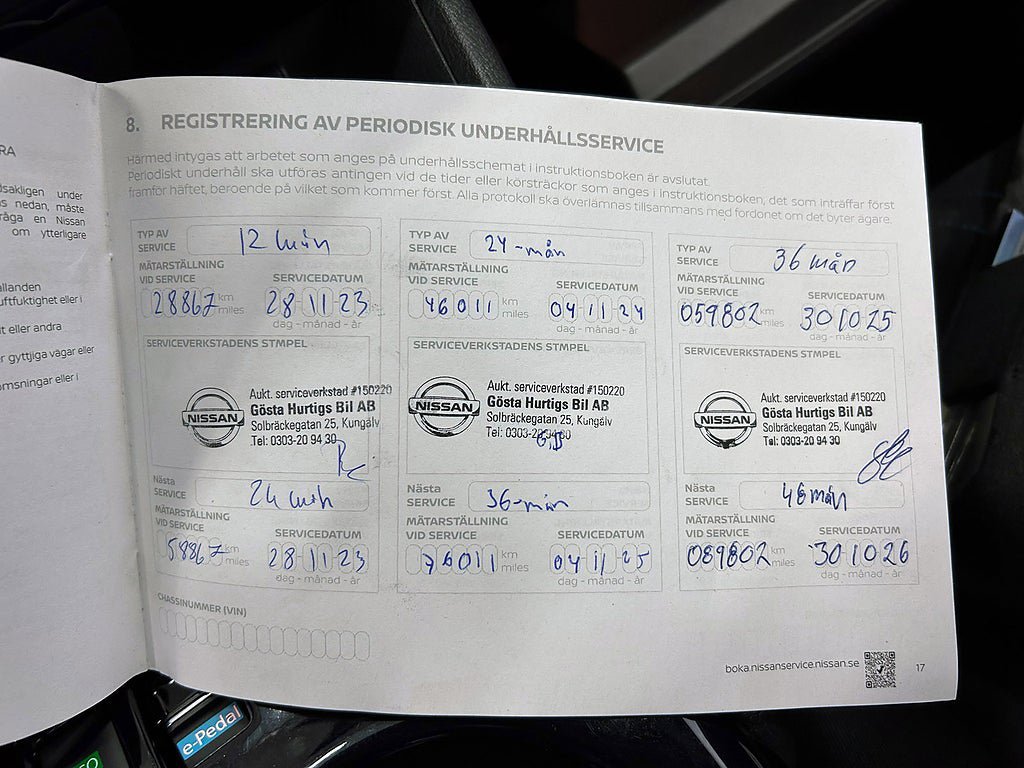 RA
dsakligen under
s nedan, måste
råga en Nissan
om ytterligere
allanden
uftfuktighet eller i
it eller andra
r gyttjiga vägar eller
omsningar eller i
8. REGISTRERING AV PERIODISK UNDERHÅLLSSERVICE
Härmed intygas att arbetet som anges på underhållsschemat i instruktionsboken är avslutat.
Periodiskt underhåll ska utföras antingen vid de tider eller körsträckor som anges i instruktionsboken, det som inträffar först
framför häftet, beroende på vilket som kommer först. Alla protokoll ska överlämnas tillsammans med fordonet om det byter ägare.
TYP AV SERVICE 12 mån
MÄTARSTÄLLNING VID SERVICE SERVICEDATUM
28867 km miles 28 11 23
dag - månad - år
SERVICEVERKSTADENS STMPEL
NISSAN
Aukt. serviceverkstad #150220
Gösta Hurtigs Bil AB
Solbräckegatan 25, Kungälv
Tel: 0303-20 94 30
Nästa SERVICE 24 mån
MÄTARSTÄLLNING VID SERVICE SERVICEDATUM
58867 km miles 28 11 23
dag - månad - år
CHASSINUMMER (VIN)
TYP AV SERVICE 24-mån
MÄTARSTÄLLNING VID SERVICE SERVICEDATUM
46011 km miles 04 11 24
dag - månad - år
SERVICEVERKSTADENS STMPEL
NISSAN
Aukt. serviceverkstad #150220
Gösta Hurtigs Bil AB
Solbräckegatan 25, Kungälv
Tel: 0303-20 94 30
Nästa SERVICE 36-mån
MÄTARSTÄLLNING VID SERVICE SERVICEDATUM
76011 km miles 04 11 25
dag - månad - år
TYP AV SERVICE 36 mån
MÄTARSTÄLLNING VID SERVICE SERVICEDATUM
059802 km miles 301025
dag - månad - år
SERVICEVERKSTADENS STMPEL
NISSAN
Aukt. serviceverkstad #150220
Gösta Hurtigs Bil AB
Solbräckegatan 25, Kungälv
Tel: 0303-20 94 30
Nästa SERVICE 48 mån
MÄTARSTÄLLNING VID SERVICE SERVICEDATUM
089802 km miles 301026
dag - månad - år
boka.nissanservice.nissan.se 17
e-Pedal